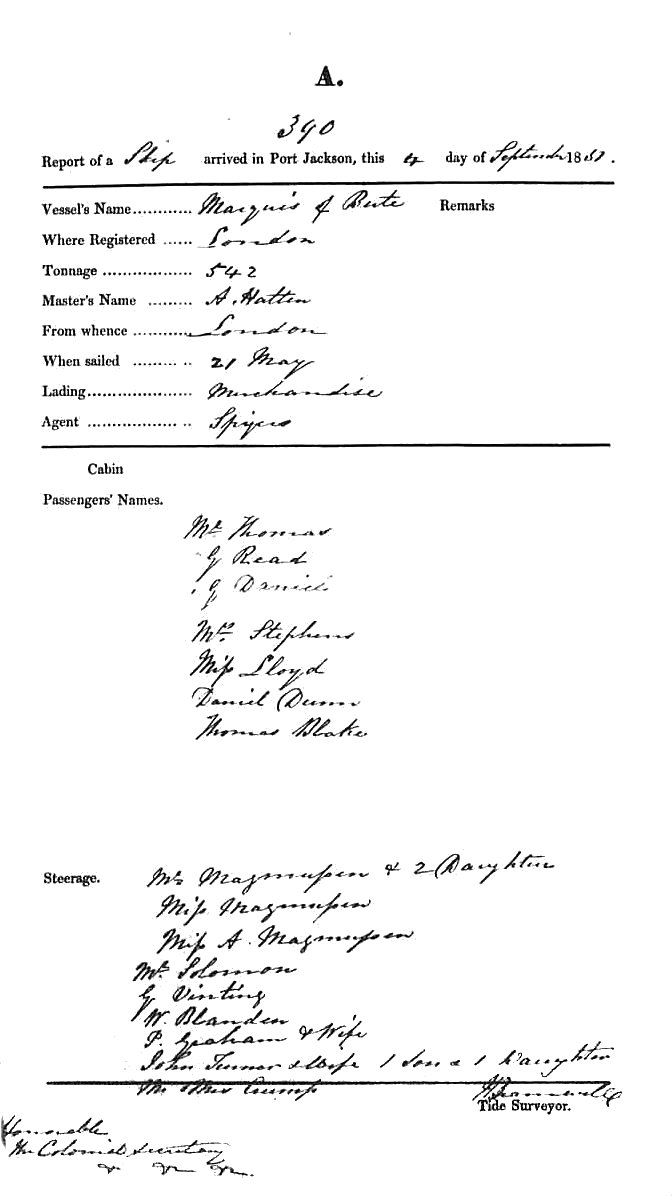 A.
390
Report of a Ship arrived in Port Jackson, this 4 day of September 18
Vessel's Name............ Marquis of Bute Remarks
Where Registered ...... London
Tonnage .................. 542
Master's Name ......... A. Hatten
From whence ............ London
When sailed ......... .. 21 May
Lading..................... Merchandise
Agent .................. .. Spyers
Cabin
Passengers' Names.
Mr Thomas
G Read
G Daniel
Mrs Stephens
Miss Lloyd
Daniel Dunn
Thomas Blake
Steerage. Mrs Magnussen & 2 Daughter
Miss Magnussen
Miss A. Magnussen
Mr Solomon
G Vinting
W. Blanden
P. Graham & Wife
John Turner & Wife 1 Son & 1 Daughter
Mr Mrs Crump
Tide Surveyor.
Honorable
The Colonial Secretary